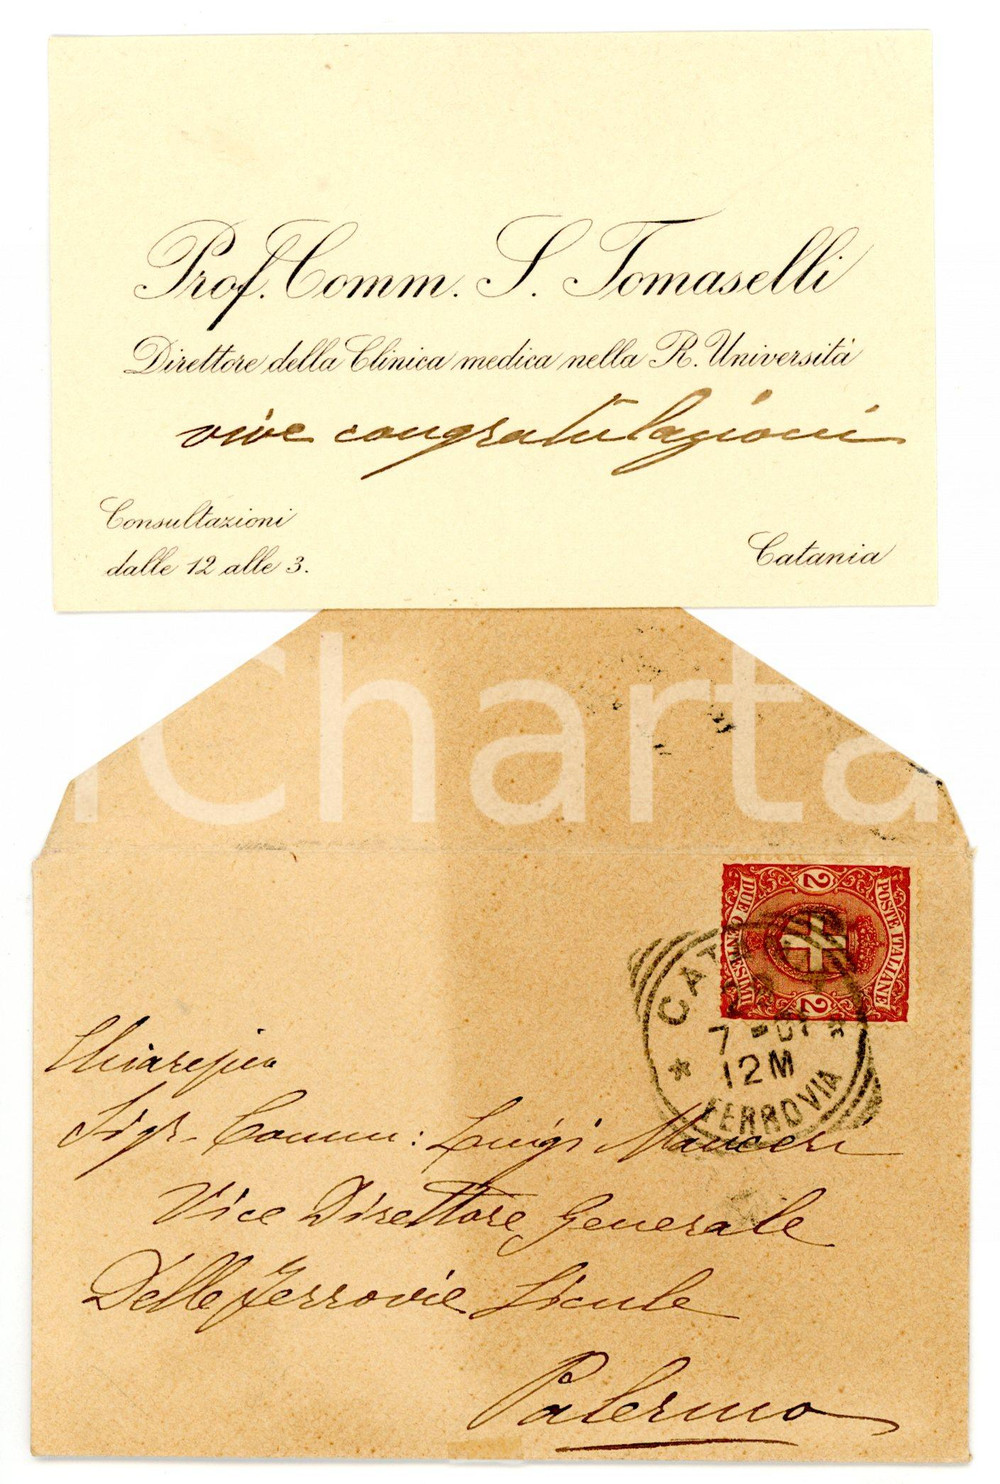 Prof. Comm. S. Tomaselli
Direttore della Clinica medica nella R. Università
vive congratulazioni
Consultazioni
dalle 12 alle 3.
Catania
Charta
POSTE ITALIANE
DUE CENTESIMI
2
2
7
12M
FERROVIA
Sigr. Comm: Luigi Mauceri
Vice Direttore Generale
Delle Ferrovie Sicule
Palermo